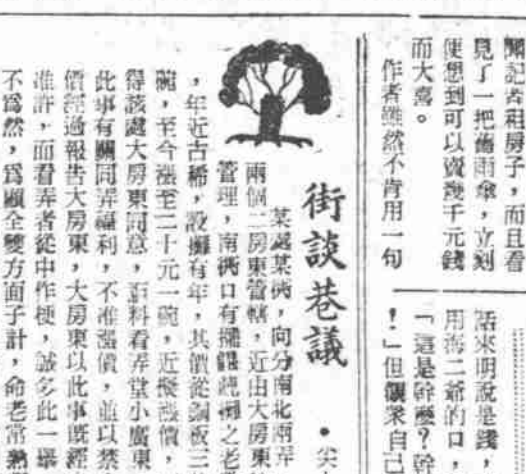 關記者租房子，而且看
見了一把舊雨傘，立刻
便想到可以賣幾千元錢
而大喜。
作者雖然不肯用一句
話來明說是錢，
用海二爺的口，
「這是幹麼？幹
！」但儼業自己
街談巷議
某處某衖，向分南北兩弄
兩個二房東管轄，近由大房東
管理，南衖口有擺餛飩攤之老
，年近古稀，設攤有年，其價從銅板三
碗，至今漲至二十元一碗，近擬漲價，
得該處大房東同意，詎料看弄堂小廣東
此事有關同弄福利，不准漲價，並以禁
價經過報告大房東，大房東以此事既經
准許，而看弄者從中作梗，誠多此一舉
不爲然，爲顧全雙方面子計，命老常熟